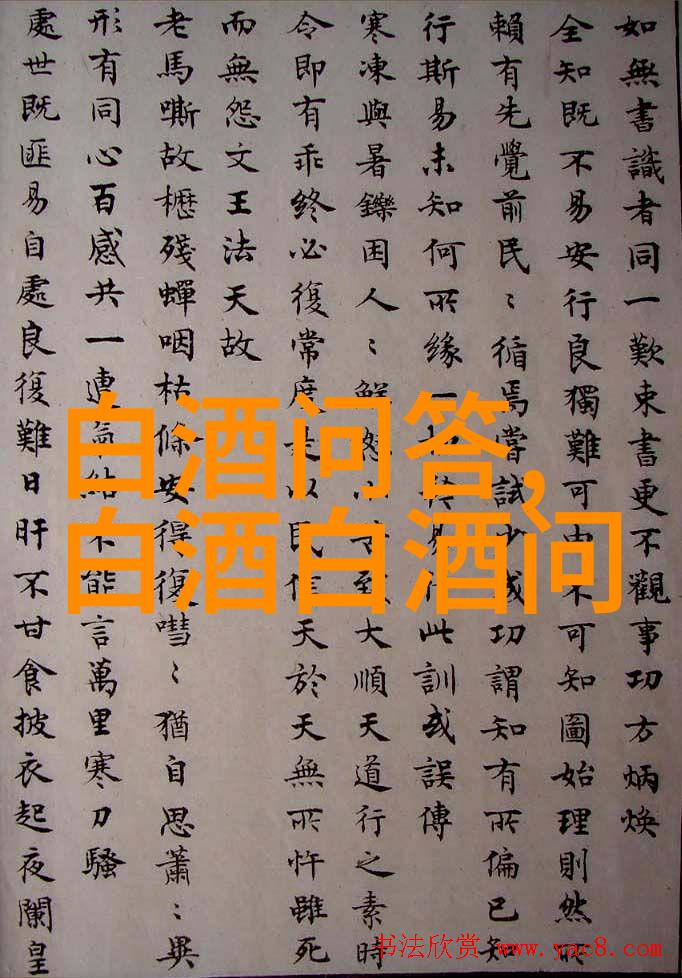 如無書識者同一歎束書更不觀事功方炳煥
全知既不易安行良獨難可由不可知圖始理則然所
賴有先覺前民〻循焉嘗試少成功謂知有所偏已知
行斯易未知何所緣一易此訓或誤傳
寒凍與暑鑠困人〻鮮怨至大順天道行之素時
令即有乖終必復常度是以民信天於天無所忤雖死
而無怨文王法天故
老馬嘶故櫪殘蟬咽枯條安得復嘒〻猶自思蕭〻異
形有同心百感共一連氣結不能言萬里寒刀騷
處世既匪易自處良復難日旰不甘食披衣起夜闌皇
白酒问答,
白酒白酒问
书法欣赏 www.yac8.com